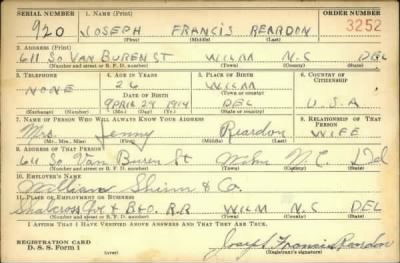 SERIAL NUMBER 1. NAME (Print) ORDER NUMBER
920 JOSEPH FRANCIS REARDON 3252
(First) (Middle) (Last)
2. ADDRESS (Print)
611 SO VAN BUREN ST WILM N.C DEL
(Number and street or R. F. D. number) (Town) (County) (State)
3. TELEPHONE 4. AGE IN YEARS 5. PLACE OF BIRTH 6. COUNTRY OF CITIZENSHIP
NONE 26 WILM
DATE OF BIRTH (Town or county)
APRIL 29 1914 DEL U.S.A
(Exchange) (Number) (Mo.) (Day) (Yr.) (State or country)
7. NAME OF PERSON WHO WILL ALWAYS KNOW YOUR ADDRESS 8. RELATIONSHIP OF THAT PERSON
Mrs. Jenny Reardon WIFE
(Mr., Mrs., Miss) (First) (Middle) (Last)
9. ADDRESS OF THAT PERSON
611 So Van Buren St Wilm N.C. Del
(Number and street or R. F. D. number) (Town) (County) (State)
10. EMPLOYER'S NAME
William Shinn & Co.
11. PLACE OF EMPLOYMENT OR BUSINESS
& B&O. R.R WILM N.C DEL
(Number and street or R. F. D. number) (Town) (County) (State)
I AFFIRM THAT I HAVE VERIFIED ABOVE ANSWERS AND THAT THEY ARE TRUE.
REGISTRATION CARD
D. S. S. FORM 1
Joseph Francis Reardon
(Registrant's signature)